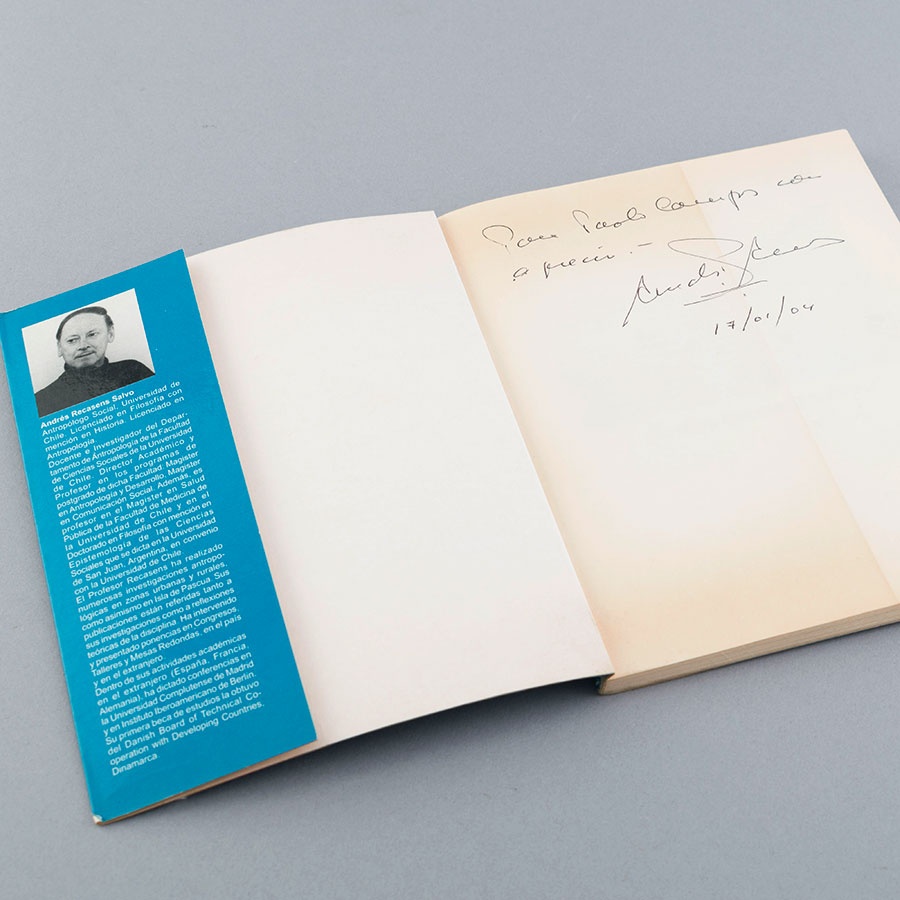 Andrés Recasens Salvo
Antropólogo Social, Universidad de
Chile. Licenciado en Filosofía con
mención en Historia. Licenciado en
Antropología.
Docente e Investigador del Depar-
tamento de Antropología de la Facultad
de Ciencias Sociales de la Universidad
de Chile. Director Académico y
Profesor en los programas de
postgrado de dicha Facultad: Magister
en Antropología y Desarrollo, Magister
en Comunicación Social. Además, es
profesor en el Magister en Salud
Pública de la Facultad de Medicina de
la Universidad de Chile y en el
Doctorado en Filosofía con mención en
Epistemología de las Ciencias
Sociales que se dicta en la Universidad
de San Juan, Argentina, en convenio
con la Universidad de Chile.
El Profesor Recasens ha realizado
numerosas investigaciones antropo-
lógicas en zonas urbanas y rurales,
como asimismo en Isla de Pascua. Sus
publicaciones están referidas tanto a
sus investigaciones como a reflexiones
teóricas de la disciplina. Ha intervenido
y presentado ponencias en Congresos,
Talleres y Mesas Redondas, en el país
y en el extranjero.
Dentro de sus actividades académicas
en el extranjero (España, Francia,
Alemania), ha dictado conferencias en
la Universidad Complutense de Madrid
y en Instituto Iberoamericano de Berlín.
Su primera beca de estudios la obtuvo
del Danish Board of Technical Co-
operation with Developing Countries,
Dinamarca
Para Paolo Campos con
aprecio.-
17/01/04